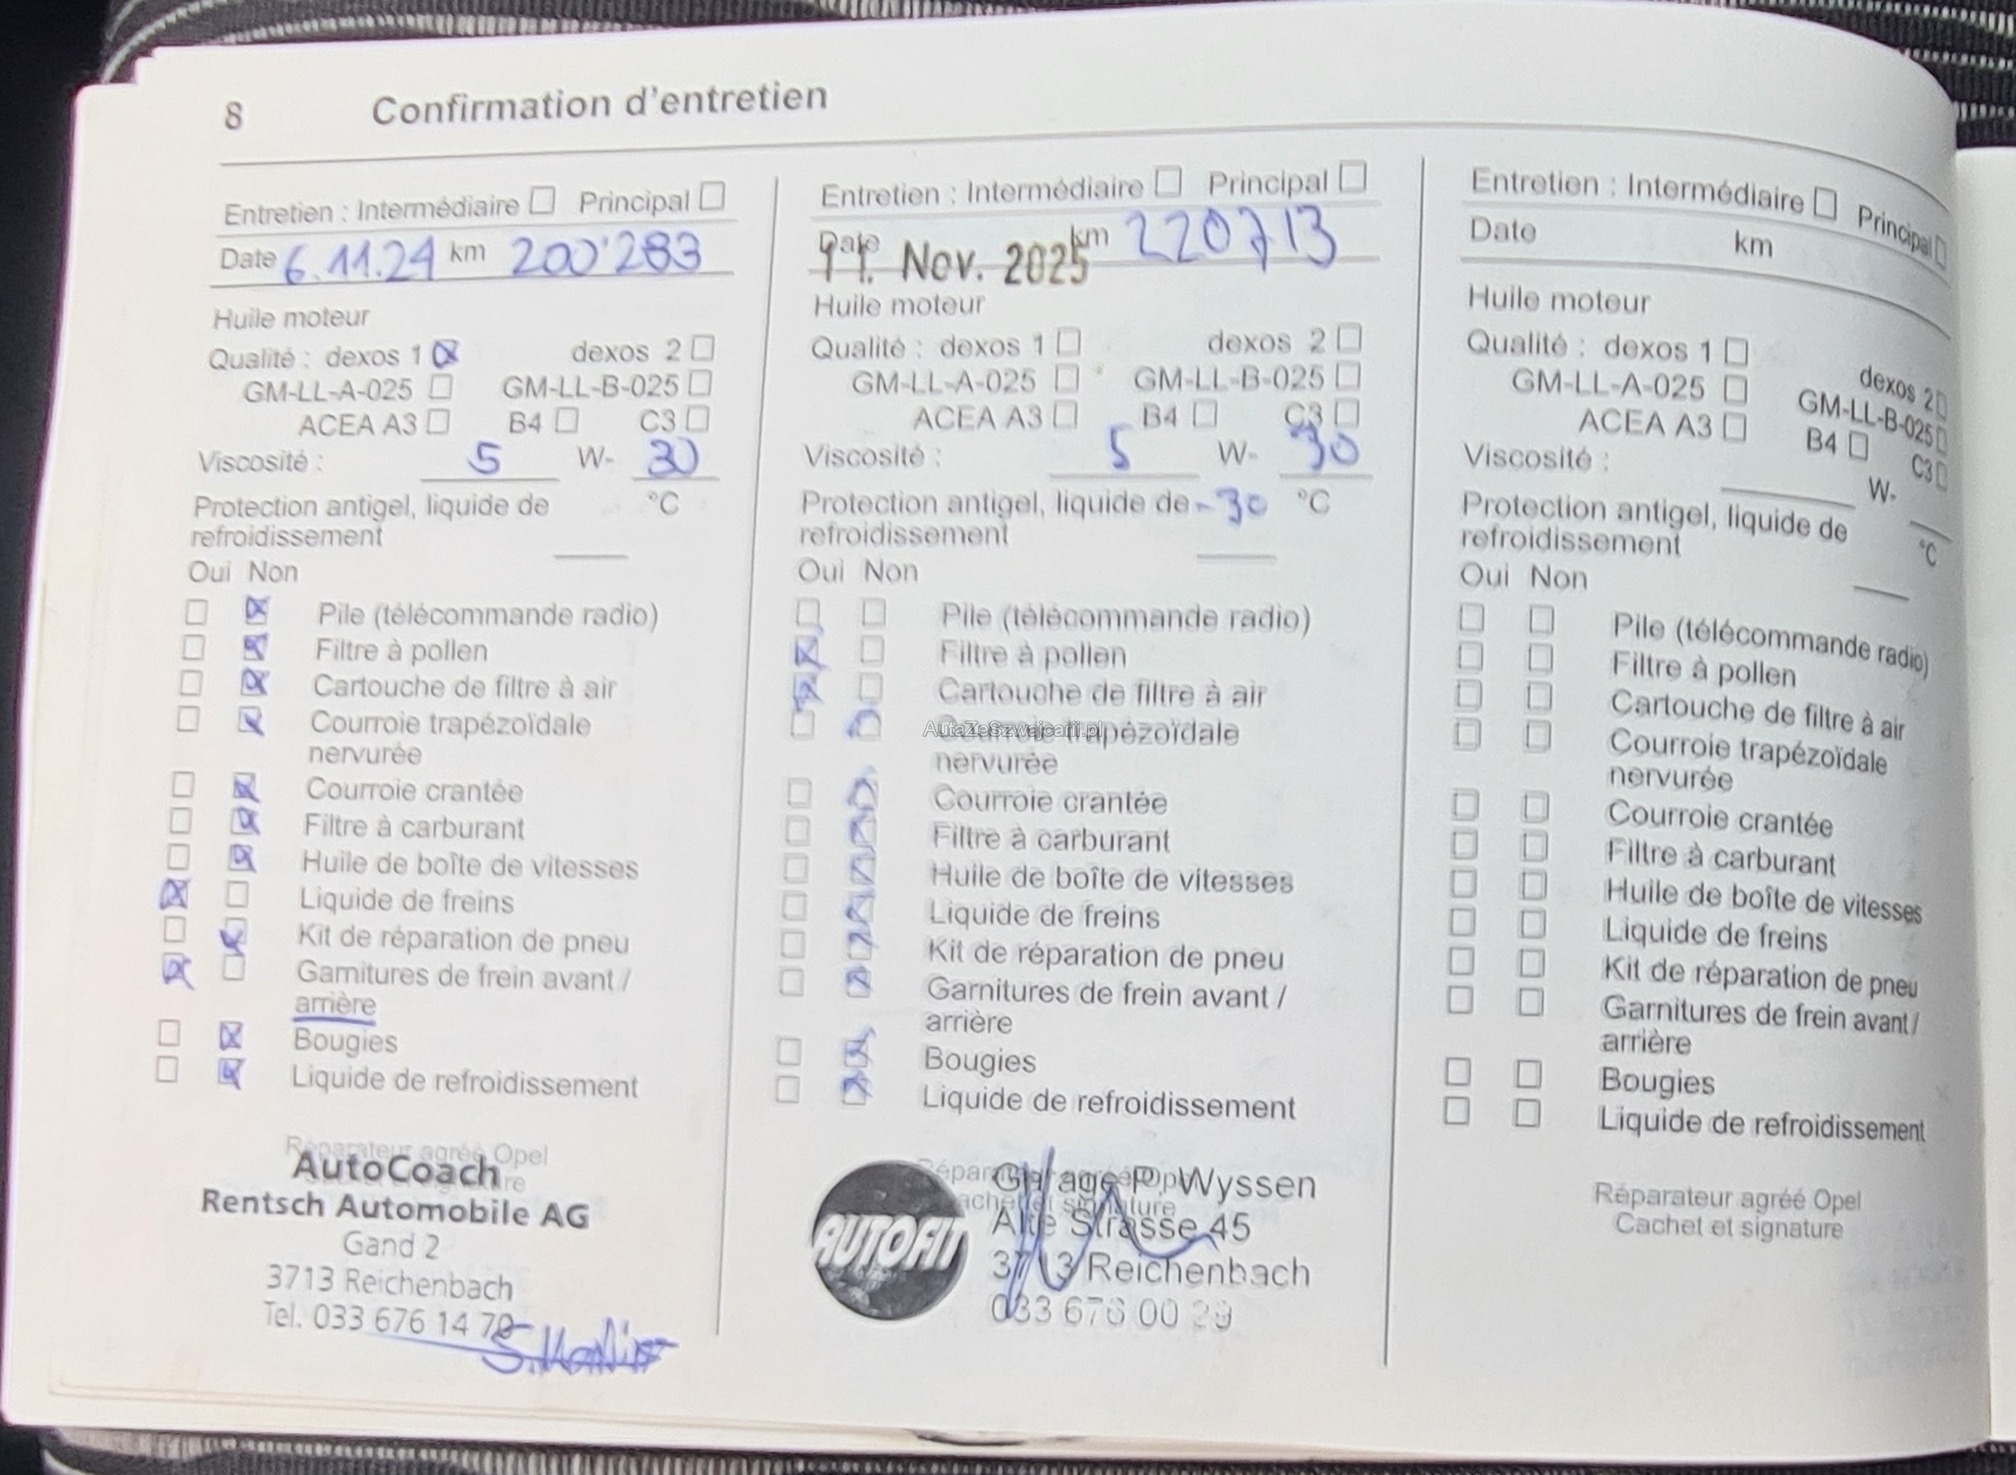 8 Confirmation d'entretien
Entretien : Intermédiaire Principal
Date 6.11.24 km 200'283
Huile moteur
Qualité : dexos 1 dexos 2
GM-LL-A-025 GM-LL-B-025
ACEA A3 B4 C3
Viscosité : 5 W- 30
Protection antigel, liquide de °C
refroidissement
Oui Non
Pile (télécommande radio)
Filtre à pollen
Cartouche de filtre à air
Courroie trapézoïdale
nervurée
Courroie crantée
Filtre à carburant
Huile de boîte de vitesses
Liquide de freins
Kit de réparation de pneu
Garnitures de frein avant /
arrière
Bougies
Liquide de refroidissement
Réparateur agréé Opel
AutoCoach
Rentsch Automobile AG
Gand 2
3713 Reichenbach
Tel. 033 676 14 70
Entretien : Intermédiaire Principal
Date 11. Nov. 2025 km 220713
Huile moteur
Qualité : dexos 1 dexos 2
GM-LL-A-025 GM-LL-B-025
ACEA A3 B4 C3
Viscosité : 5 W- 30
Protection antigel, liquide de -30 °C
refroidissement
Oui Non
Pile (télécommande radio)
Filtre à pollen
Cartouche de filtre à air
AutaZeSzwajcarii.pl
Courroie trapézoïdale
nervurée
Courroie crantée
Filtre à carburant
Huile de boîte de vitesses
Liquide de freins
Kit de réparation de pneu
Garnitures de frein avant /
arrière
Bougies
Liquide de refroidissement
AUTOFIT
Garage P. Wyssen
Alte Strasse 45
3713 Reichenbach
033 676 00 29
Entretien : Intermédiaire Principal
Date km
Huile moteur
Qualité : dexos 1 dexos 2
GM-LL-A-025 GM-LL-B-025
ACEA A3 B4 C3
Viscosité : W-
Protection antigel, liquide de °C
refroidissement
Oui Non
Pile (télécommande radio)
Filtre à pollen
Cartouche de filtre à air
Courroie trapézoïdale
nervurée
Courroie crantée
Filtre à carburant
Huile de boîte de vitesses
Liquide de freins
Kit de réparation de pneu
Garnitures de frein avant /
arrière
Bougies
Liquide de refroidissement
Réparateur agréé Opel
Cachet et signature